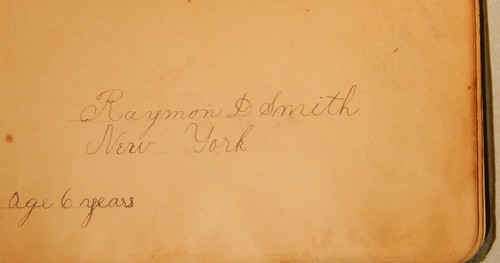 Raymon D Smith
New York
age 6 years